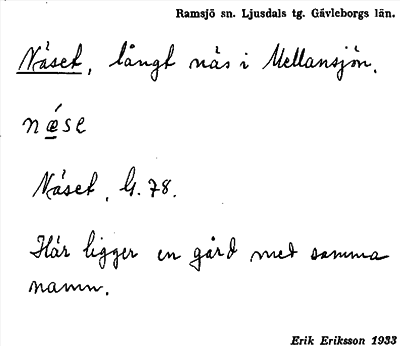 Ramsjö sn. Ljusdals tg. Gävleborgs län.
Näset, långt näs i Mellansjön.
nǽse
Näset, G. 78.
Här ligger en gård med samma
namn.
Erik Eriksson 1933